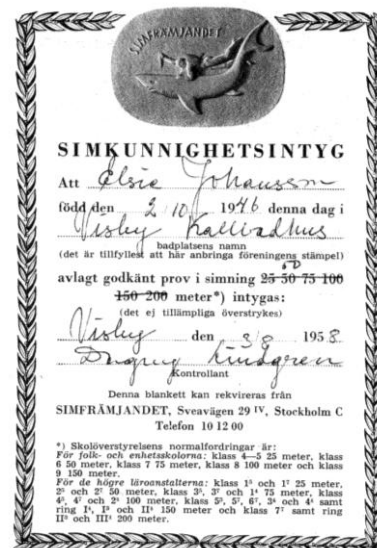 SIMFRÄMJANDET
SIMKUNNIGHETSINTYG
Att Elsie Johansson
född den 2/10 1946 denna dag i
Visby Kallbadhus
badplatsens namn
(det är tillfyllest att här anbringa föreningens stämpel)
50
avlagt godkänt prov i simning 25 50 75 100
150 200 meter*) intygas:
(det ej tillämpliga överstrykes)
Visby den 3/8 1958
Lindgren
Kontrollant
Denna blankett kan rekvireras från
SIMFRÄMJANDET, Sveavägen 29 IV, Stockholm C
Telefon 10 12 00
*) Skolöverstyrelsens normalfordringar är:
För folk- och enhetsskolorna: klass 4—5 25 meter, klass
6 50 meter, klass 7 75 meter, klass 8 100 meter och klass
9 150 meter.
För de högre läroanstalterna: klass 1⁵ och 1⁷ 25 meter,
2⁵ och 2⁷ 50 meter, klass 3⁵, 3⁷ och 1⁴ 75 meter, klass
4⁵, 4⁷ och 2⁴ 100 meter, klass 5⁵, 5⁷, 6⁷, 3⁴ och 4⁴ samt
ring I⁴, I³ och II³ 150 meter och klass 7⁷ samt ring
II³ och III⁴ 200 meter.